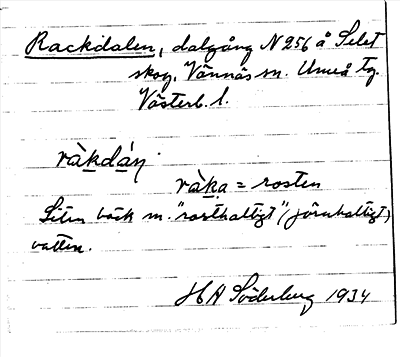 Rackdalen, dalgång N 256 å Selet
skog, Vännäs sn. Umeå tg.
Västerb. l.
ràkdáṇ
ràḳa = rosten
Liten bäck m. "rosthaltigt" (järnhaltigt)
vatten.
HA Söderberg 1934